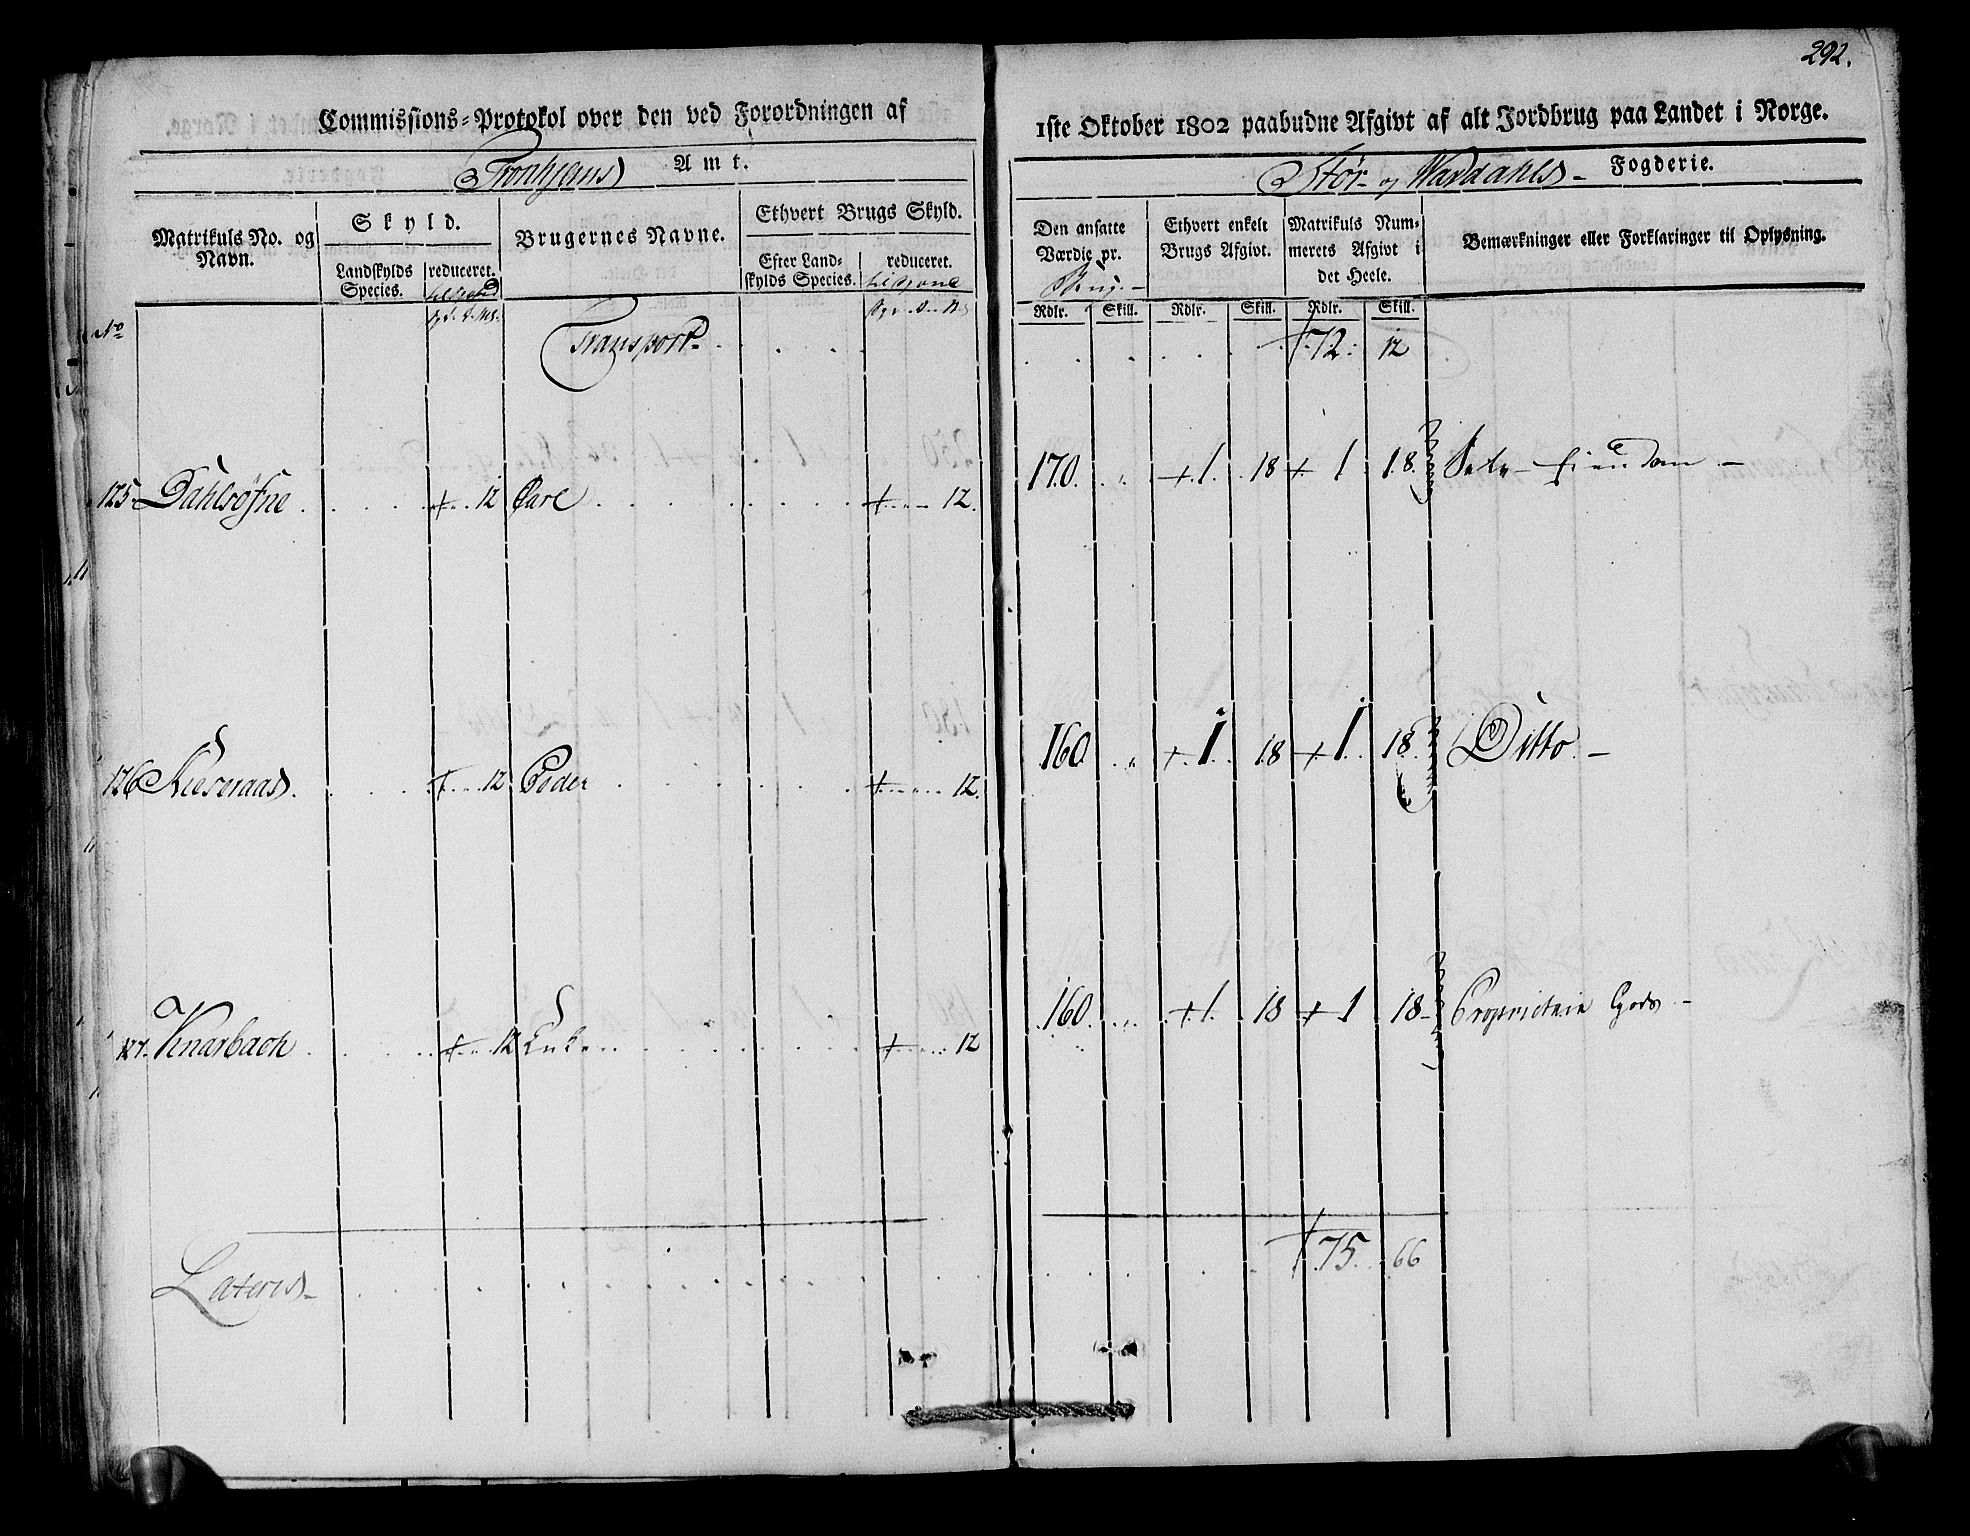 292.
Commissions-Protokol over den ved Forordningen af
1ste Oktober 1802 paabudne Afgivt af alt Jordbrug paa Landet i Norge.
Tronhjems Amt.
Stør- og Wærdahls- Fogderie.
Matrikuls No. og Navn.
Skyld.
Landskylds Species.
reduceret.
Brugernes Navne.
Ethvert Brugs Skyld.
Efter Landskylds Species.
reduceret.
Den ansatte Værdie pr.
Brug.-
Ethvert enkelt Brugs Afgivt.
Matrikuls Nummerets Afgivt i det Heele.
Bemærkninger eller Forklaringer til Oplysning.
Rdlr. Skill. Rdlr. Skill. Rdlr. Skill.
No
Transport- 72. 12
125 Dahlsøfne 12 Carl 12. 170. " 1. 18 1 18. Selv-Eiendom-
126 12 Peder 12. 160 " 1. 18 1. 18. Ditto.-
127. Knarbach 12 12 160. " 1. 18 1 18- Proprietair Gods-
Lateris- 75. 66